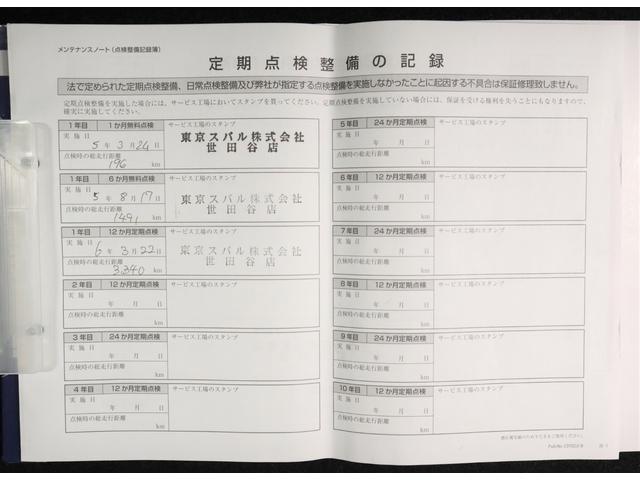 メンテナンスノート（点検整備記録簿）
定期点検整備の記録
法で定められた定期点検整備、日常点検整備及び弊社が指定する点検整備を実施しなかったことに起因する不具合は保証修理致しません。
定期点検整備を実施した場合には、サービス工場においてスタンプを貰ってください。定期点検整備を実施していない場合には、保証を受ける権利を失うことにもなりますので、
確実に実施してください。
1年目 1か月無料点検 サービス工場のスタンプ
実施日
5年3月24日
東京スバル株式会社
世田谷店
点検時の総走行距離
196 km
1年目 6か月無料点検 サービス工場のスタンプ
実施日
5年8月17日
東京スバル株式会社
世田谷店
点検時の総走行距離
1491 km
1年目 12か月定期点検 サービス工場のスタンプ
実施日
6年3月22日
東京スバル株式会社
世田谷店
点検時の総走行距離
3,340 km
2年目 12か月定期点検 サービス工場のスタンプ
実施日
年 月 日
点検時の総走行距離
km
3年目 24か月定期点検 サービス工場のスタンプ
実施日
年 月 日
点検時の総走行距離
km
4年目 12か月定期点検 サービス工場のスタンプ
実施日
年 月 日
点検時の総走行距離
km
5年目 24か月定期点検 サービス工場のスタンプ
実施日
年 月 日
点検時の総走行距離
km
6年目 12か月定期点検 サービス工場のスタンプ
実施日
年 月 日
点検時の総走行距離
km
7年目 24か月定期点検 サービス工場のスタンプ
実施日
年 月 日
点検時の総走行距離
km
8年目 12か月定期点検 サービス工場のスタンプ
実施日
年 月 日
点検時の総走行距離
km
9年目 24か月定期点検 サービス工場のスタンプ
実施日
年 月 日
点検時の総走行距離
km
10年目 12か月定期点検 サービス工場のスタンプ
実施日
年 月 日
点検時の総走行距離
km